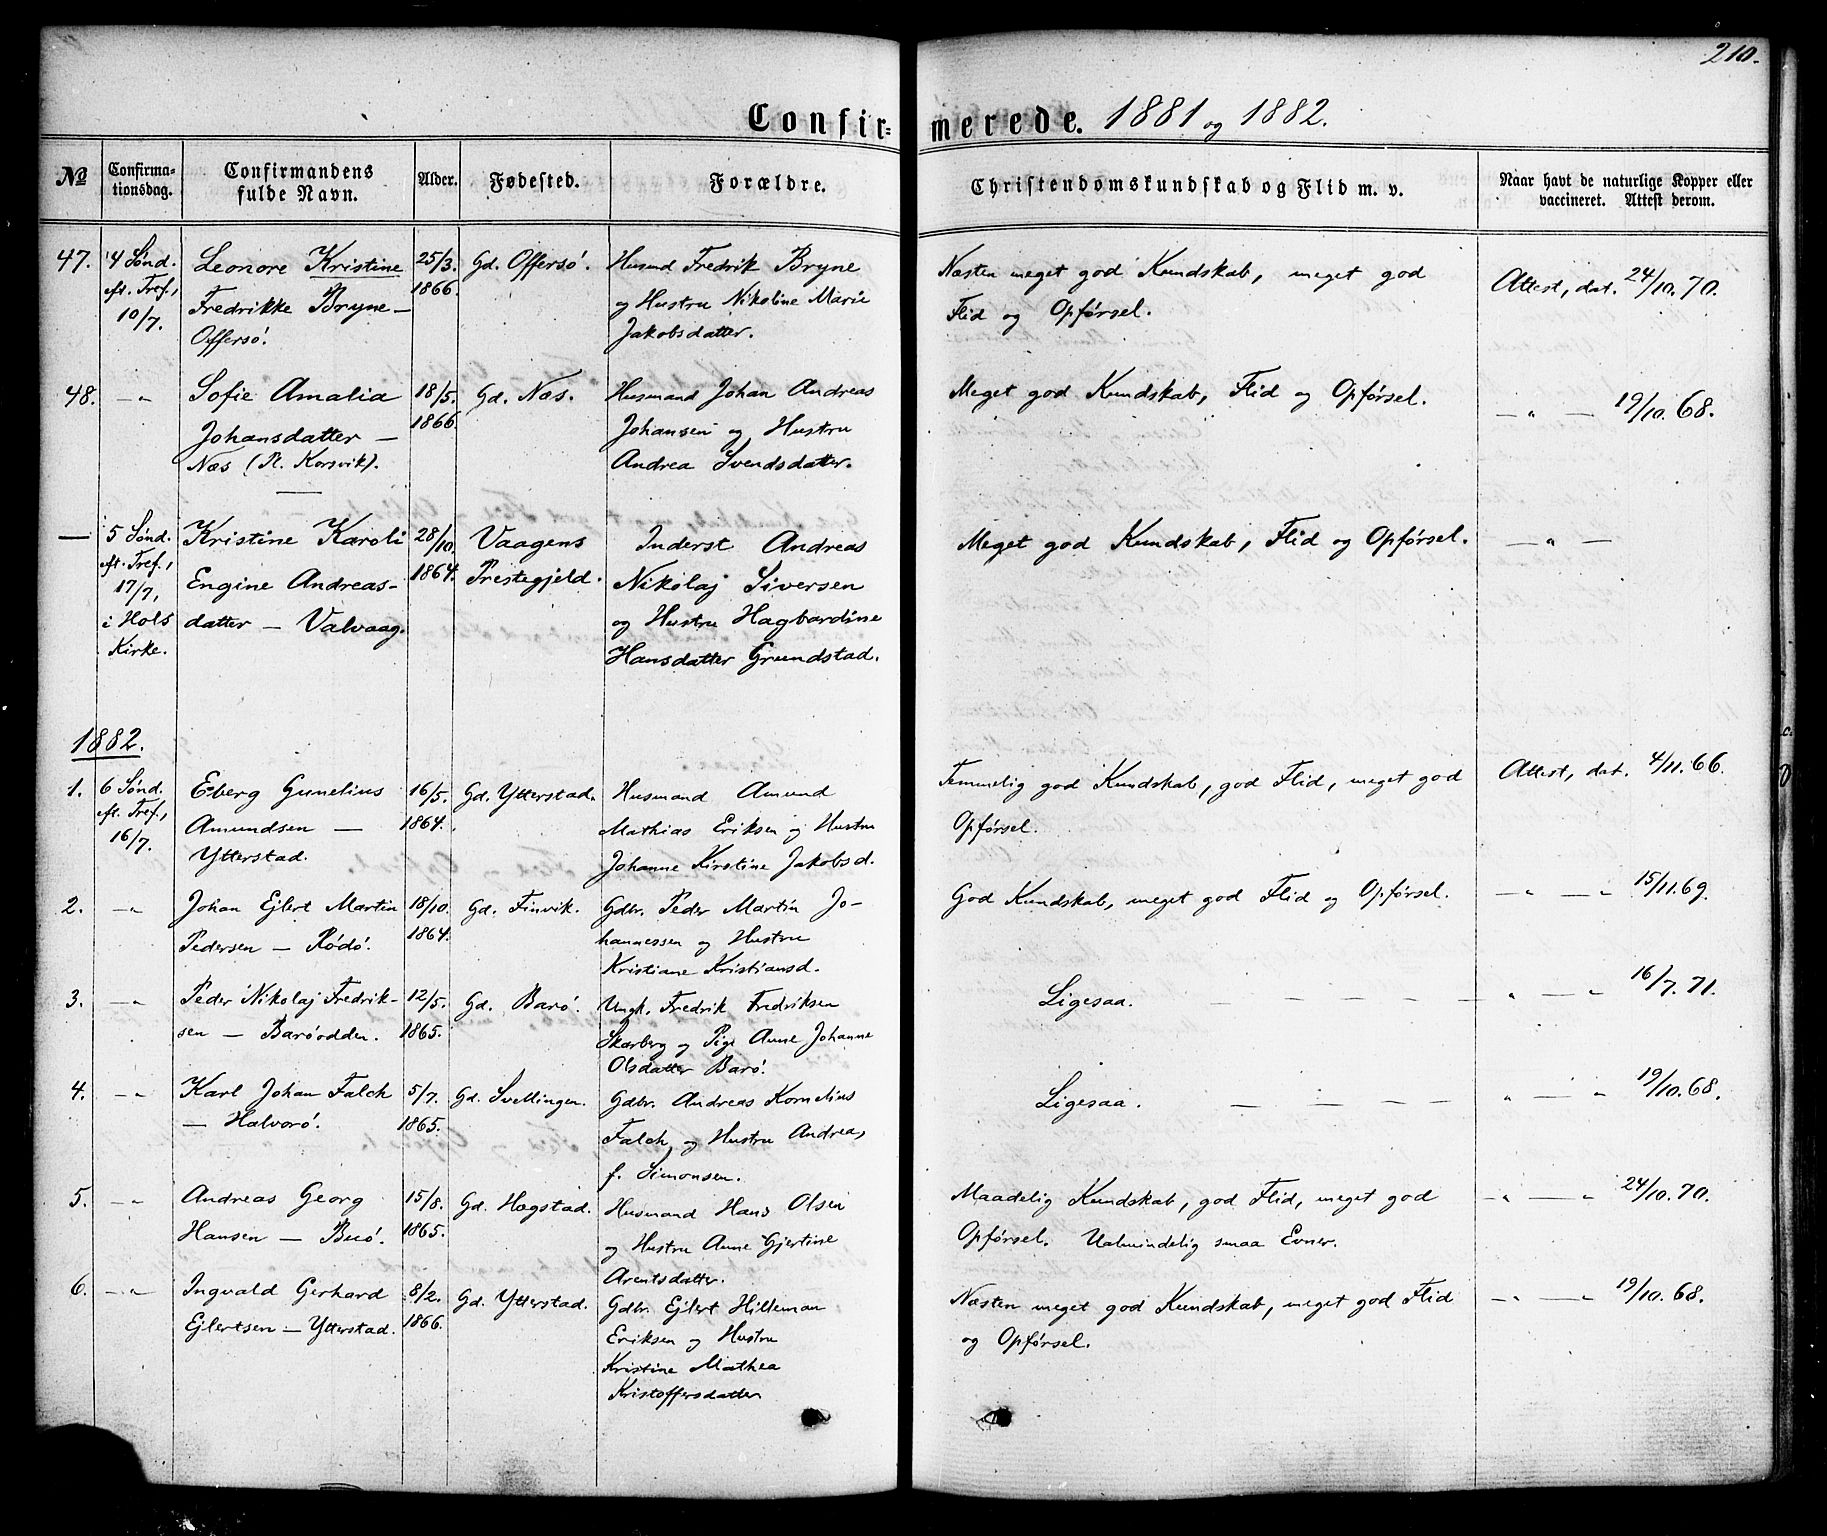 210.
Confir-merede. 1881 og 1882.
№ Confirma-tionsdag. Confirmandens fulde Navn. Alder. Fødested. Forældre. Christendomskundskab og Flid m. v. Naar havt de naturlige Kopper eller vaccineret. Attest derom.
47. 4 Sønd. Leonore Kristine 25/3. Gd. Offersö. Husmd Fredrik Bryne Næsten meget god Kundskab, meget god Attest, dat. 24/10. 70.
eft. Tref., Fredrikke Bryne — 1866. og Hustru Nikoline Marie Flid og Opförsel.
10/7. Offersö. Jakobsdatter.
48. — „ Sofie Amalia 18/5. Gd. Næs. Husmand Johan Andreas Meget god Kundskab, Flid og Opförsel. — „ — 19/10. 68.
Johansdatter — 1866. Johansen og Hustru
Næs (Pl. Korsvik). Andrea Svendsdatter.
— 5 Sønd. Kristine Karoli 28/10. Vaagens Inderst Andreas Meget god Kundskab, Flid og Opförsel. — „ —
eft. Tref., Engine Andreas- 1864. Prestegjeld. Nikolaj Siversen
17/7, datter — Valvaag. og Hustru Hagbardine
i Hols Hansdatter Grundstad.
Kirke.
1882.
1. 6 Sönd. Eberg Gunelius 16/5. Gd. Ytterstad. Husmand Amund Temmelig god Kundskab, god Flid, meget god Attest, dat. 4/11. 66.
eft. Tref., Amundsen — 1864. Mathias Eriksen og Hustru Opförsel.
16/7. Ytterstad. Johanne Kirstine Jakobsd.
2. — „ Johan Ejlert Martin 18/10. Gd. Finvik. Gdbr. Peder Martin Jo- God Kundskab, meget god Flid og Opförsel. — „ — „ 15/11. 69.
Pedersen — Rödö. 1864. hannessen og Hustru
Kristiane Kristiansd.
3. — „ Peder Nikolaj Fredrik- 12/5. Gd. Barö. Ungk. Fredrik Fredriksen Ligesaa. — — — — „ — „ 16/7. 71.
sen — Baröodden. 1865. Skarberg og Pige Anne Johanne
Olsdatter Barö.
4. — „ Karl Johan Falch 5/7. Gd. Svellingen. Gdbr. Andreas Kornelius Ligesaa. — — — — „ — „ 19/10. 68.
— Halvarö. 1865. Falch og Hustru Andrea,
f. Simonsen.
5. — „ Andreas Georg 15/8. Gd. Hægstad. Husmand Hans Olsen Maadelig Kundskab, god Flid, meget god — „ — „ 24/10. 70.
Hansen — Buö. 1865. og Hustru Anne Gjertine Opförsel. Ualmindelig smaa Evner.
Arentsdatter.
6. — „ Ingvald Gerhard 8/2. Gd. Ytterstad. Gdbr. Ejlert Hilleman Næsten meget god Kundskab, meget god Flid — „ — „ 19/10. 68.
Ejlertsen — Ytterstad. 1866. Eriksen og Hustru og Opförsel.
Kristine Mathea
Kristoffersdatter